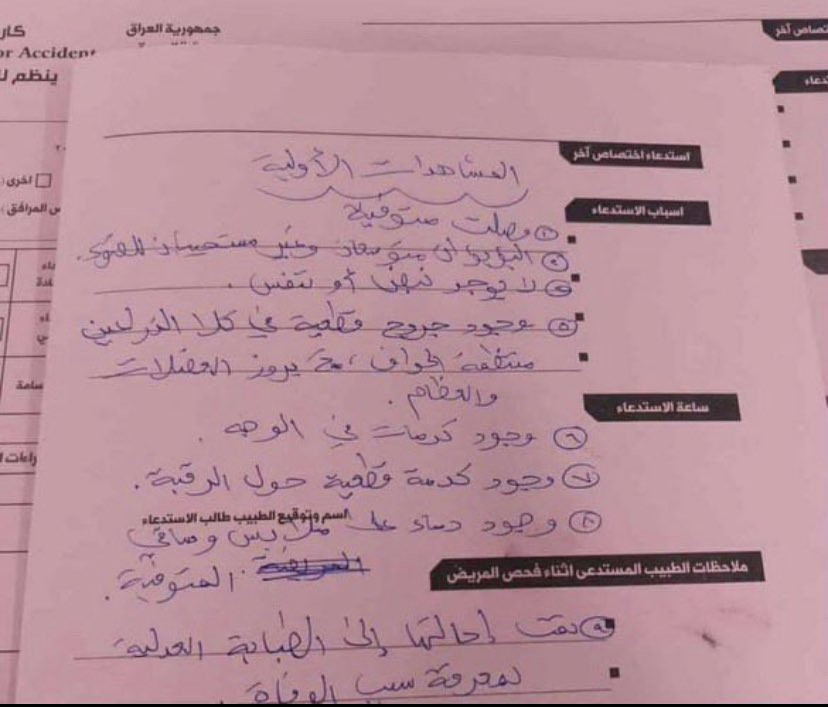 جمهورية العراق
or Accident
ينظم
اخرى
المرافق
استدعاء اختصاص آخر
المشاهدات الأولية
اسباب الاستدعاء
① وصلت متوفية
② البؤبؤان متوسعان وغير مستجيبان للضوء.
لا يوجد نبض أو تنفس.
⑤ وجود جروح قطعية في كلا الذراعين
منتظمة الحواف، مع بروز العضلات
والعظام.
ساعة الاستدعاء
⑥ وجود كدمات في الوجه.
⑦ وجود كدمة قطعية حول الرقبة.
اسم وتوقيع الطبيب طالب الاستدعاء
⑧ وجود دماء على ملابس وساقي
المتوفية.
ملاحظات الطبيب المستدعى اثناء فحص المريض
⑨ تمت إحالتها إلى الطبابة العدلية
لمعرفة سبب الوفاة.